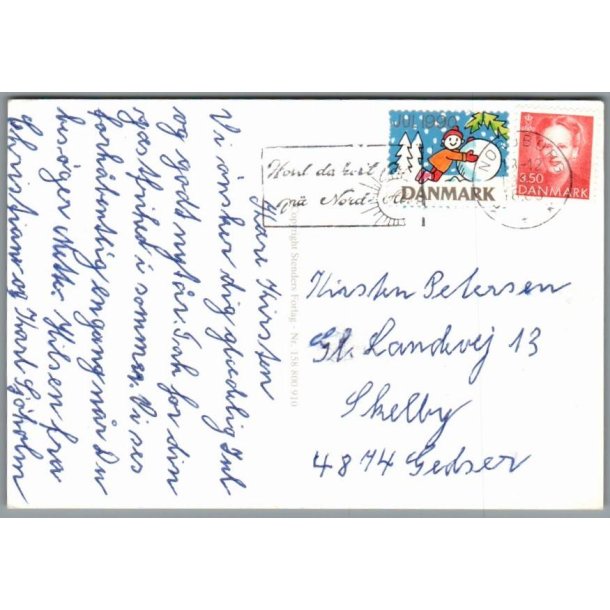 Kære Kirsten
Vi ønsker dig glædelig Jul
og godt nytår. Tak for din
gæstfrihed i sommer. Vi ses
forhåbentlig engang når Du
besøger Mette. Hilsen fra
Christiane og Karl Sjöholm
JUL 1990
DANMARK
3.50
DANMARK
på Nord-Als
Copyright Stenders Forlag - Nr. 158 800/910
Kirsten Petersen
Gl. Landevej 13
Skelby
4874 Gedser